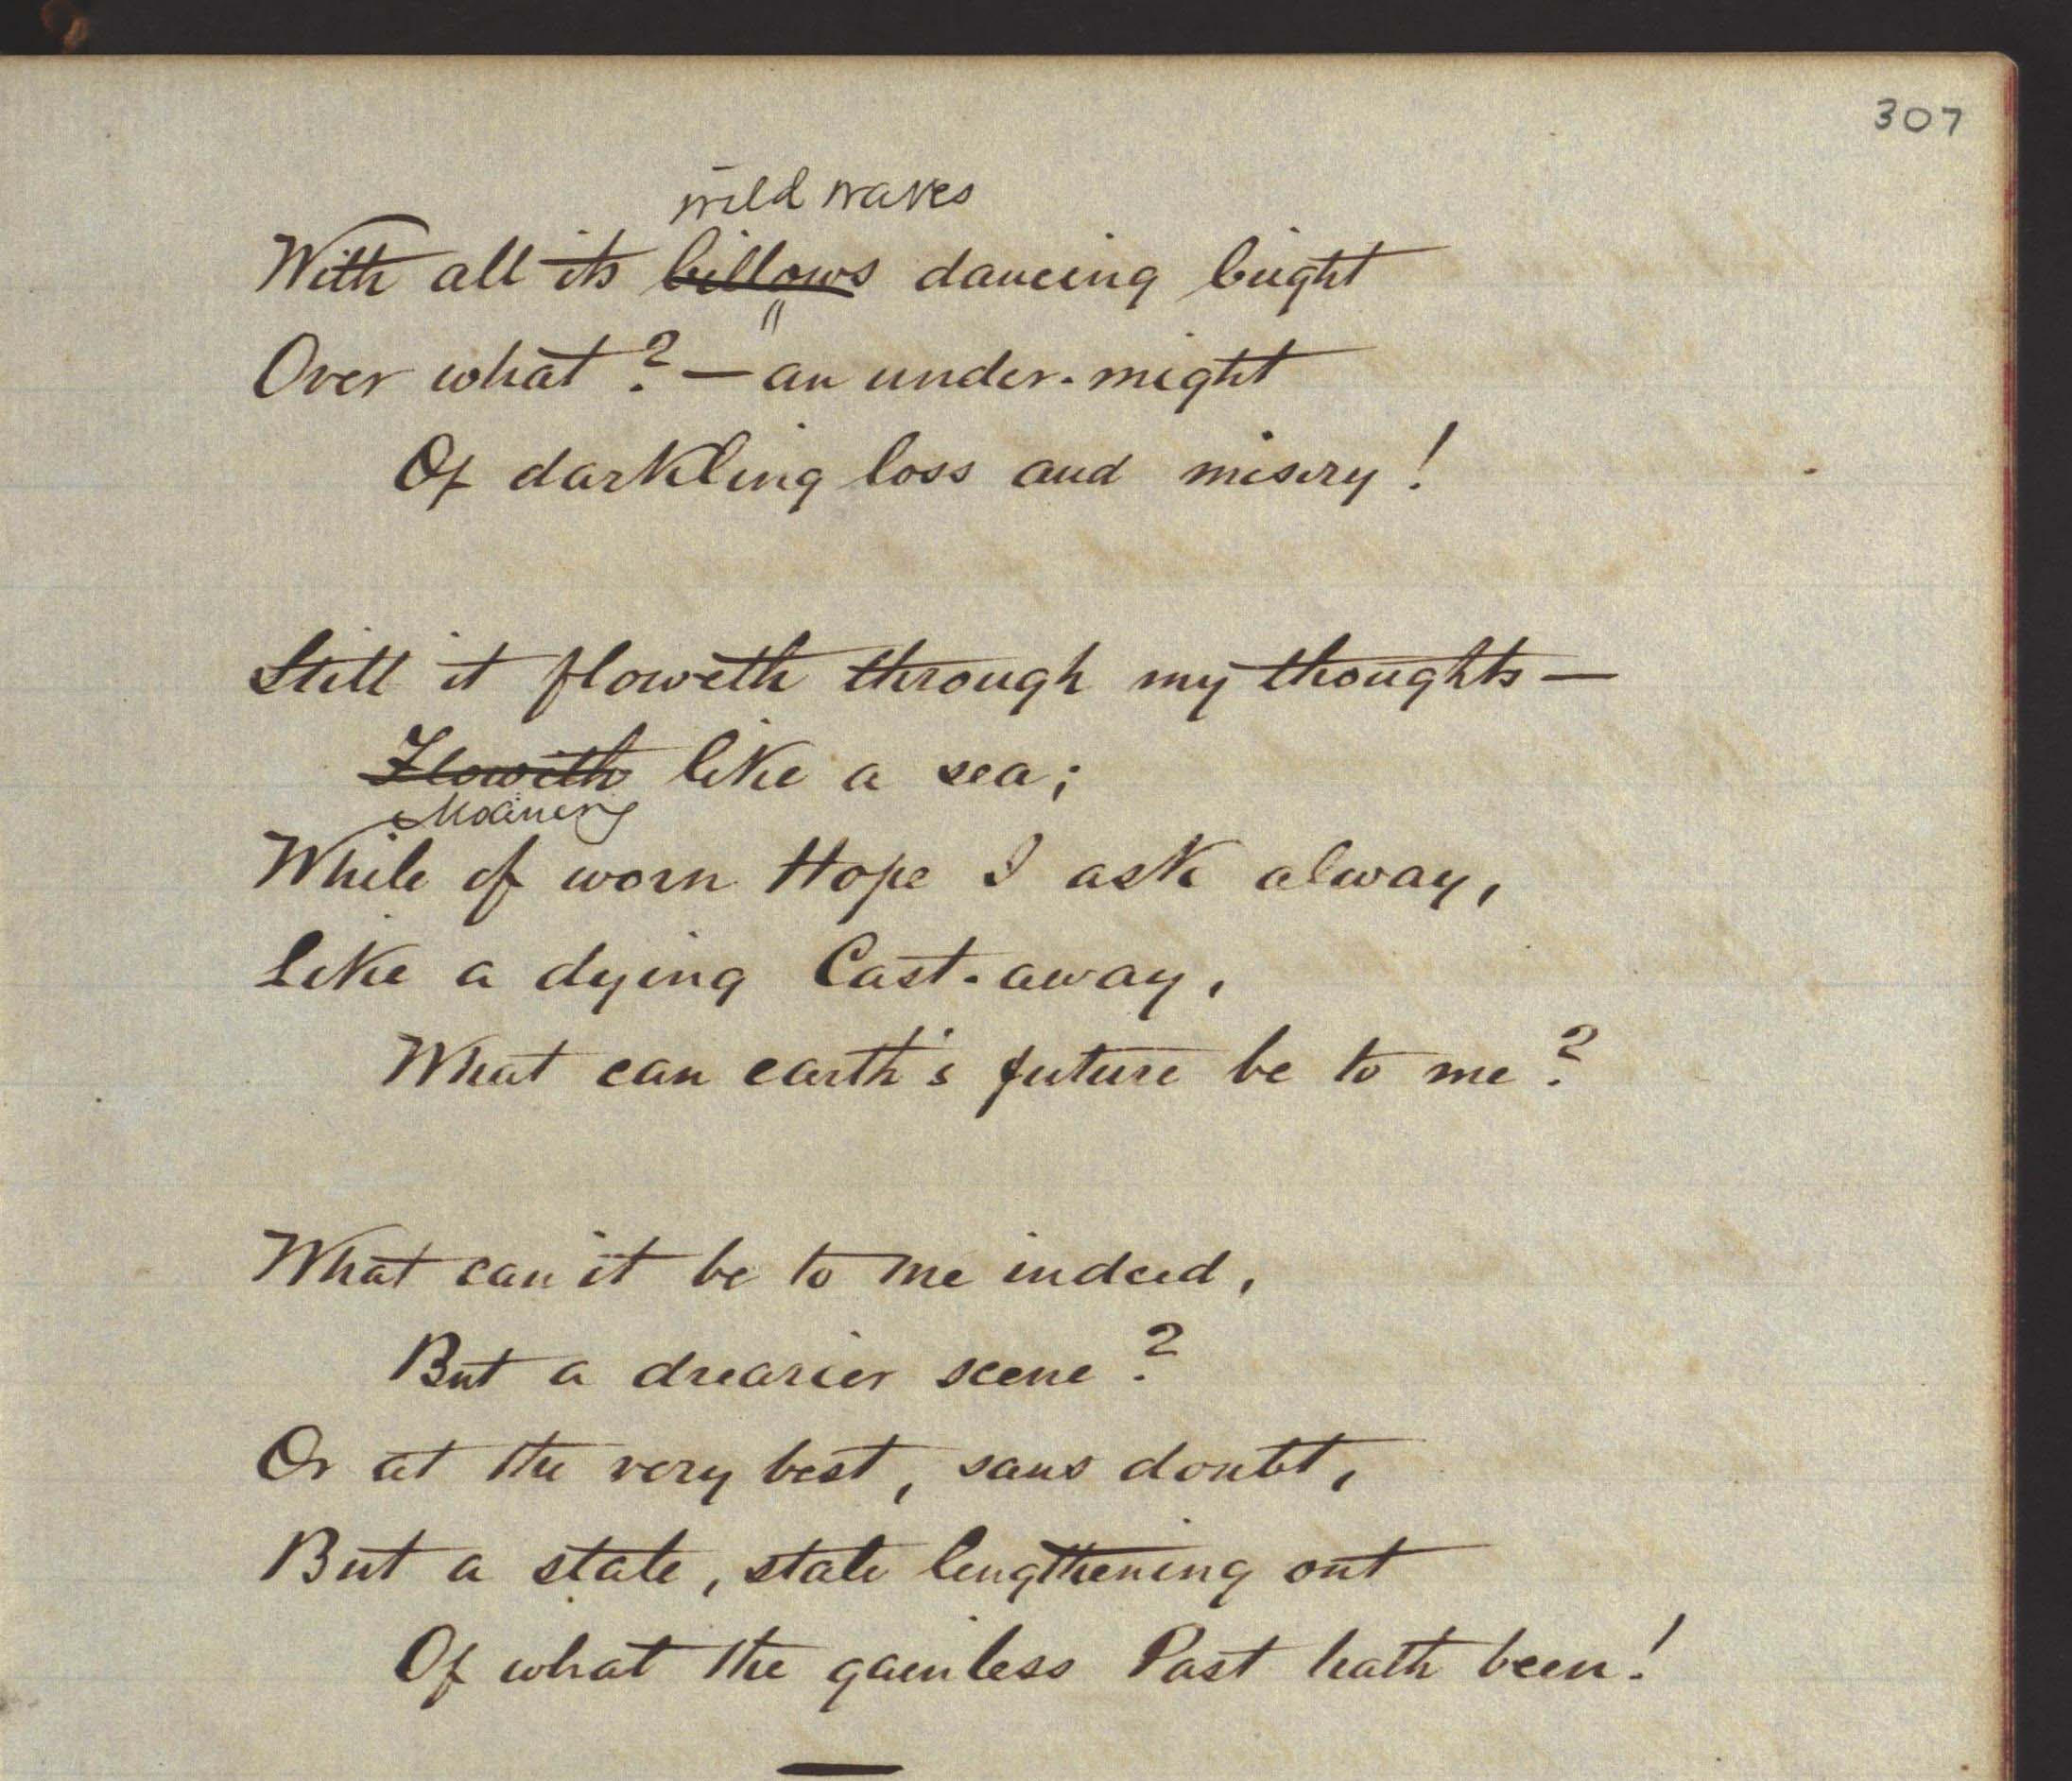 307
wild waves
With all its billows dancing bright
Over what? — an under-might
Of darkling loss and misery!
Still it floweth through my thoughts —
Floweth like a sea;
Moaning
While of worn Hope I ask alway,
Like a dying Cast-away,
What can earth's future be to me?
What can it be to me indeed,
But a drearier scene?
Or at the very best, sans doubt,
But a state, stale lengthening out
Of what the gainless Past hath been!